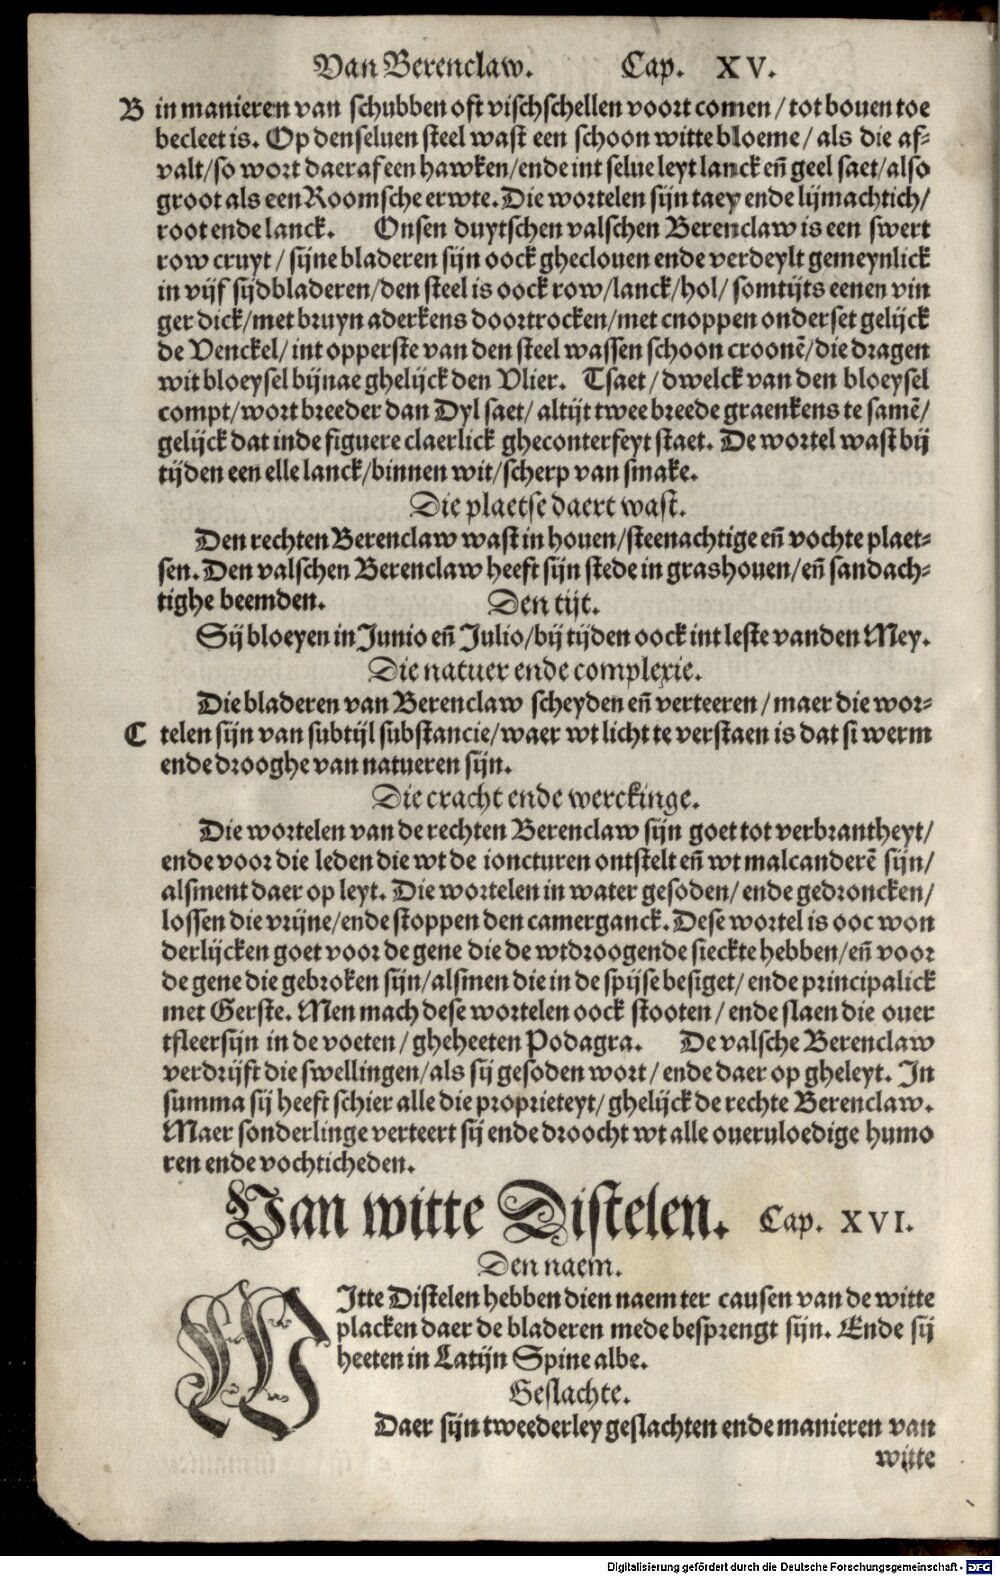 Van Berenclaw. Cap. XV.
B in manieren van schubben oft vischschellen voort comen / tot bouen toe
becleet is. Op den seluen steel wast een schoon witte bloeme / als die af-
valt/so wort daer af een hawken/ende int selue leyt lanck eñ geel saet/also
groot als een Roomsche erwte. Die wortelen sijn taey ende lijmachtich/
root ende lanck. Onsen duytschen valschen Berenclaw is een swert
row cruyt / sijne bladeren sijn oock ghecloven ende verdeylt gemeynlick
in vijf sijdbladeren/den steel is oock row/lanck/hol/ somtijts eenen vin
ger dick/met bruyn aderkens doortrocken/met cnoppen onderset gelijck
de Venckel/ int opperste van den steel wassen schoon croonē/die dragen
wit bloeysel bijnae ghelijck den Vlier. Tsaet / dwelck van den bloeysel
compt/wort breeder dan Dyl saet/ altijt twee breede graenkens te samē/
gelijck dat inde figuere claerlick gheconterfeyt staet. De wortel wast bij
tijden een elle lanck/binnen wit/scherp van smake.
Die plaetse daert wast.
Den rechten Berenclaw wast in houen/steenachtige eñ vochte plaet-
sen. Den valschen Berenclaw heeft sijn stede in grashouen/eñ sandach-
tighe beemden. Den tijt.
Sij bloeyen in Junio eñ Julio/bij tijden oock int leste vanden Mey.
Die natuer ende complexie.
Die bladeren van Berenclaw scheyden eñ verteeren / maer die wor-
C telen sijn van subtijl substancie/waer wt licht te verstaen is dat si werm
ende drooghe van natueren sijn.
Die cracht ende werckinge.
Die wortelen van de rechten Berenclaw sijn goet tot verbrantheyt/
ende voor die leden die wt de ioncturen ontstelt eñ wt malcanderē sijn/
alsment daer op leyt. Die wortelen in water gesoden/ ende gedroncken/
lossen die vrijne/ende stoppen den camerganck. Dese wortel is ooc won
derlijcken goet voor de gene die de wtdroogende sieckte hebben/eñ voor
de gene die gebroken sijn/alsmen die in de spijse besiget/ ende principalick
met Gerste. Men mach dese wortelen oock stooten / ende slaen die ouer
tfleersijn in de voeten / gheheeten Podagra. De valsche Berenclaw
verdrijft die swellingen/als sij gesoden wort / ende daer op gheleyt. In
summa sij heeft schier alle die proprieteyt/ ghelijck de rechte Berenclaw.
Maer sonderlinge verteert sij ende droocht wt alle oueruloedige humo
ren ende vochticheden.
Van witte Distelen. Cap. XVI.
Den naem.
WItte Distelen hebben dien naem ter causen van de witte
placken daer de bladeren mede besprengt sijn. Ende sij
heeten in Latijn Spine albe.
Geslachte.
Daer sijn tweederley geslachten ende manieren van
witte
Digitalisierung gefördert durch die Deutsche Forschungsgemeinschaft - DFG